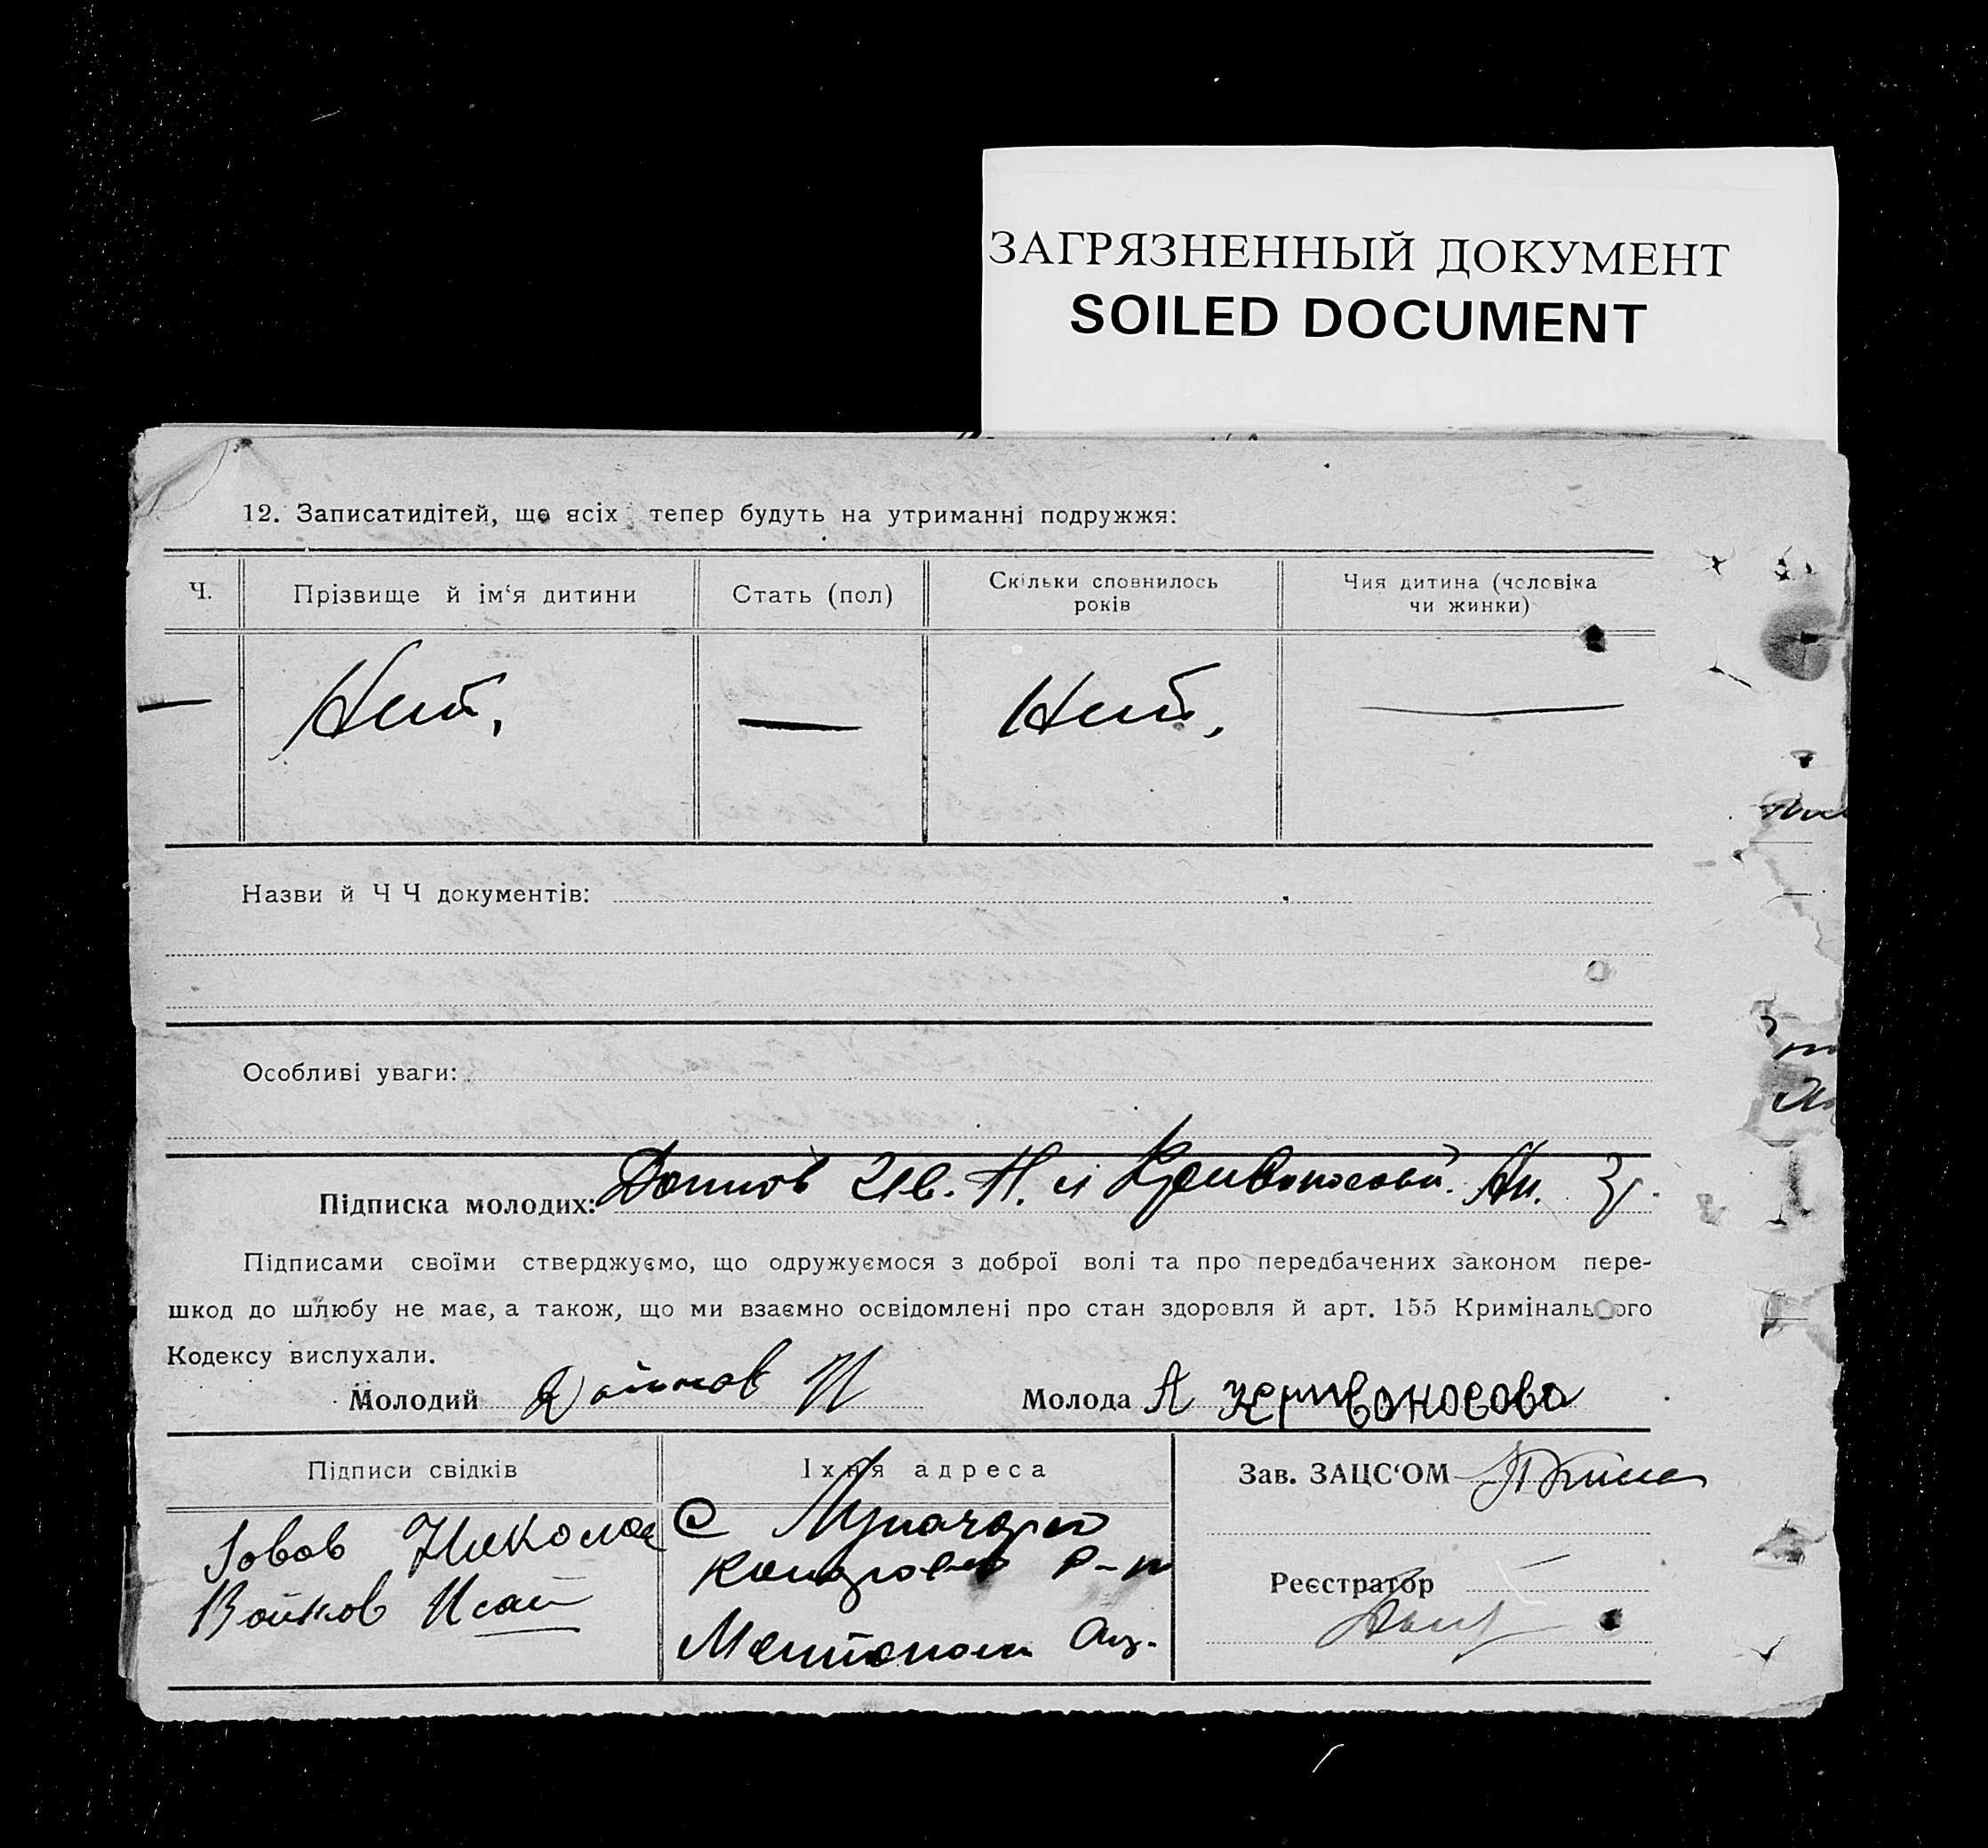 ЗАГРЯЗНЕННЫЙ ДОКУМЕНТ
SOILED DOCUMENT
12. Записатидітей, що всіх тепер будуть на утриманні подружжя:
Ч.
Прізвище й ім‘я дитини
Стать (пол)
Скільки сповнилось
років
Чия дитина (чоловіка
чи жинки)
— Нет, — Нет, —
Назви й Ч Ч документів:
Особливі уваги:
Підписка молодих: Ив. Н. и Кривоносовой Ан.
Підписами своїми стверджуємо, що одружуємося з доброї волі та про передбачених законом пере-
шкод до шлюбу не має, а також, що ми взаємно освідомлені про стан здоровля й арт. 155 Кримінального
Кодексу вислухали.
Молодий И Молода А Кривоносова
Підписи свідків
Їхня адреса
Зав. ЗАЦС‘ОМ
Николай
Войков Исай
С
Р-н
Реєстратор